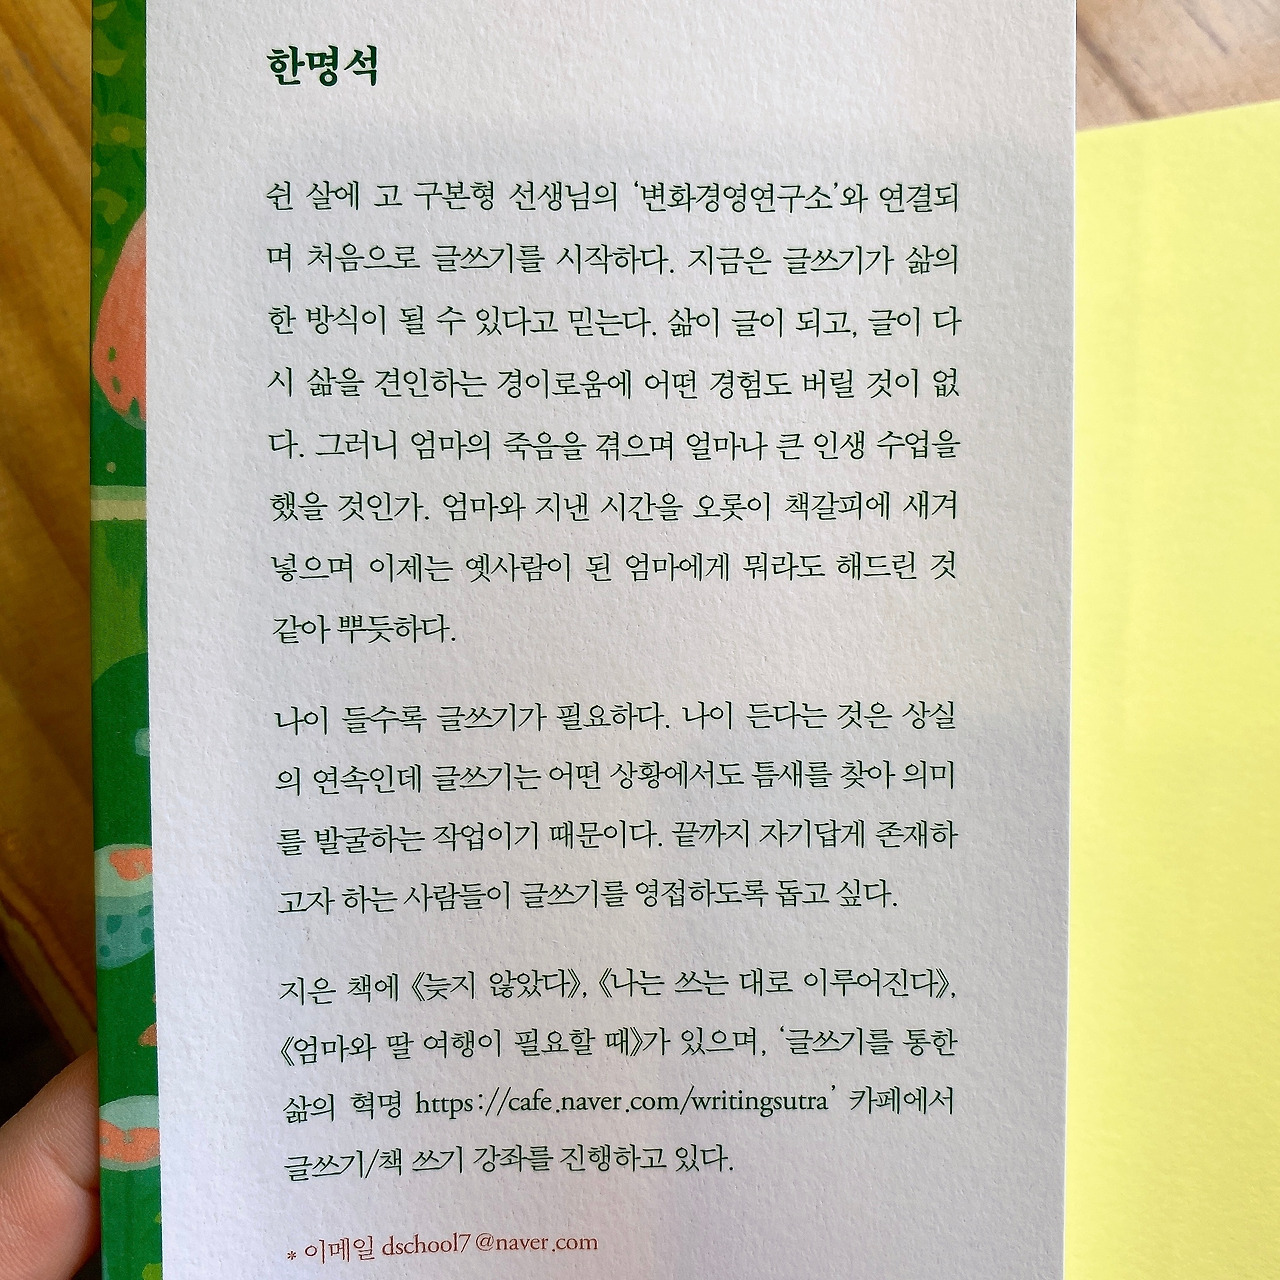 한명석
쉰 살에 고 구본형 선생님의 ‘변화경영연구소’와 연결되
며 처음으로 글쓰기를 시작하다. 지금은 글쓰기가 삶의
한 방식이 될 수 있다고 믿는다. 삶이 글이 되고, 글이 다
시 삶을 견인하는 경이로움에 어떤 경험도 버릴 것이 없
다. 그러니 엄마의 죽음을 겪으며 얼마나 큰 인생 수업을
했을 것인가. 엄마와 지낸 시간을 오롯이 책갈피에 새겨
넣으며 이제는 옛사람이 된 엄마에게 뭐라도 해드린 것
같아 뿌듯하다.
나이 들수록 글쓰기가 필요하다. 나이 든다는 것은 상실
의 연속인데 글쓰기는 어떤 상황에서도 틈새를 찾아 의미
를 발굴하는 작업이기 때문이다. 끝까지 자기답게 존재하
고자 하는 사람들이 글쓰기를 영접하도록 돕고 싶다.
지은 책에 《늦지 않았다》, 《나는 쓰는 대로 이루어진다》,
《엄마와 딸 여행이 필요할 때》가 있으며, ‘글쓰기를 통한
삶의 혁명 https://cafe.naver.com/writingsutra’ 카페에서
글쓰기/책 쓰기 강좌를 진행하고 있다.
* 이메일 dschool7@naver.com